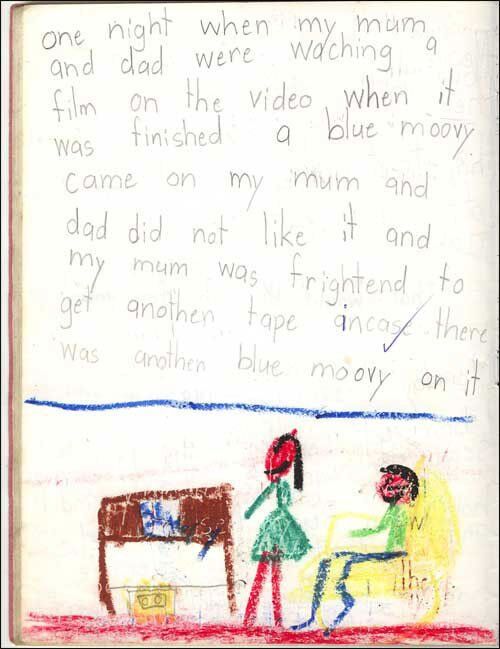 one night when my mum
and dad were waching a
film on the video when it
was finished a blue moovy
came on my mum and
dad did not like it and
my mum was frightend to
get anothen tape incase there
was anothen blue moovy on it